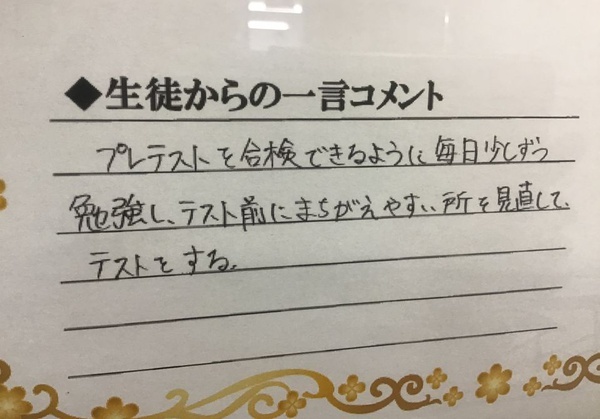 ◆生徒からの一言コメント
プレテストを合検できるように毎日少しずつ
勉強し、テスト前にまちがえやすい所を見直して、
テストをする。